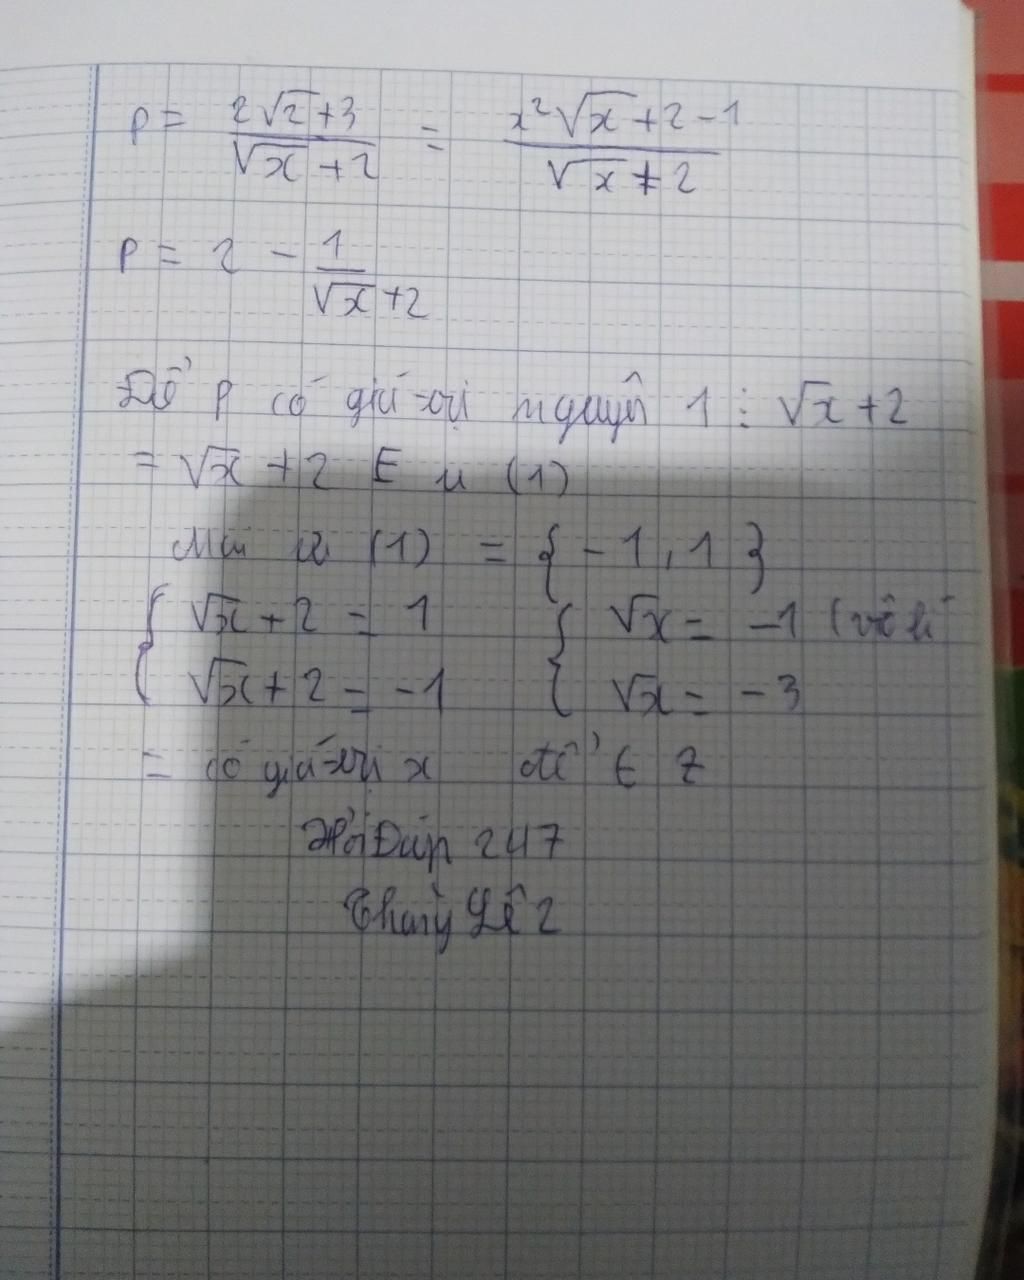 P = (2√2+3)/(√x+2) = (x²√x+2-1)/(√x+2)
P = 2 - 1/(√x+2)
Để P có giá trị nguyên 1 ⋮ √x+2
= √x+2 E ư (1)
Mà ư (1) = {-1, 1}
{ √x+2 = 1 { √x = -1 (vô lí
{ √x+2 = -1 { √x = -3
= có giá trị x để ∈ Z
Hỏi Đáp 247